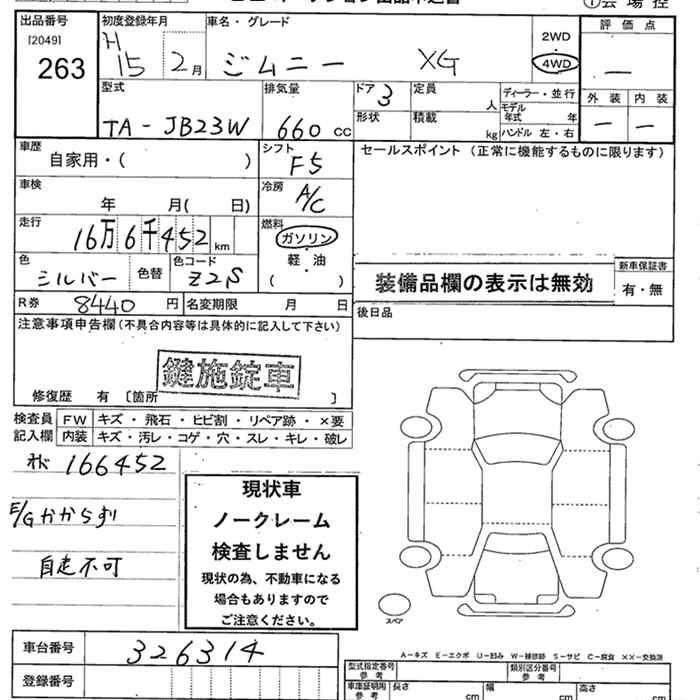 出品番号
[2049]
263
初度登録年月
H
15 2月
車名・グレード
ジムニー XG
2WD
4WD
評価点
―
型式
TA-JB23W
排気量
660 cc
ドア
3
形状
定員
人
積載
kg
ディーラー・並行
モデル
年式 年
ハンドル 左・右
外装 内装
― ―
車歴
自家用・( )
シフト
F5
セールスポイント(正常に機能するものに限ります)
車検
年 月( 日)
冷房
A/C
走行
16万6千452 km
燃料
ガソリン
軽・油
( )
色
シルバー
色替
色コード
Z2S
装備品欄の表示は無効
新車保証書
有・無
R券 8440 円
名変期限 月 日
後日品
注意事項申告欄(不具合内容等は具体的に記入して下さい)
鍵施錠車
修復歴 有 [箇所 ]
検査員
記入欄
FW キズ・飛石・ヒビ割・リペア跡・×要
内装 キズ・汚レ・コゲ・穴・スレ・キレ・破レ
166452
E/Gかからず
自走不可
現状車
ノークレーム
検査しません
現状の為、不動車になる
場合もありますので
ご注意ください。
スペア
A-キズ E-エクボ U-凹み W-補修跡 S-サビ C-腐食 ××-交換済
車台番号 326314
登録番号
型式指定番号
参考
類別区分番号
参考
車庫証明用
参考
長さ cm
幅 cm
高さ cm